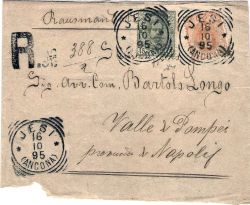 JESI
16
10
95
(ANCONA)
JESI
16
10
95
(ANCONA)
R.
388
Bartolo Longo
Valle di Pompei
provincia di Napoli
JESI
16
10
95
(ANCONA)